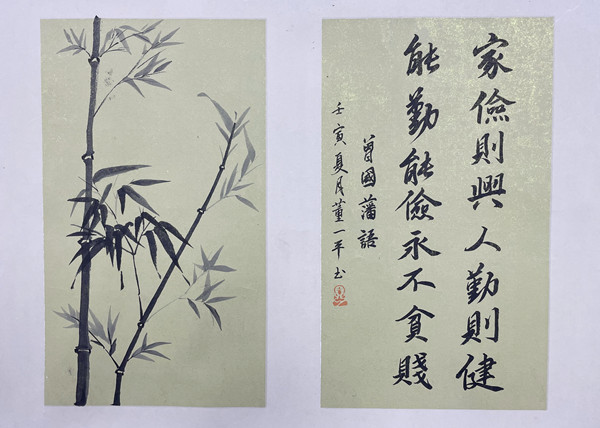 家儉則興人勤則健
能勤能儉永不貧賤
曾國藩語
壬寅夏月董一平书